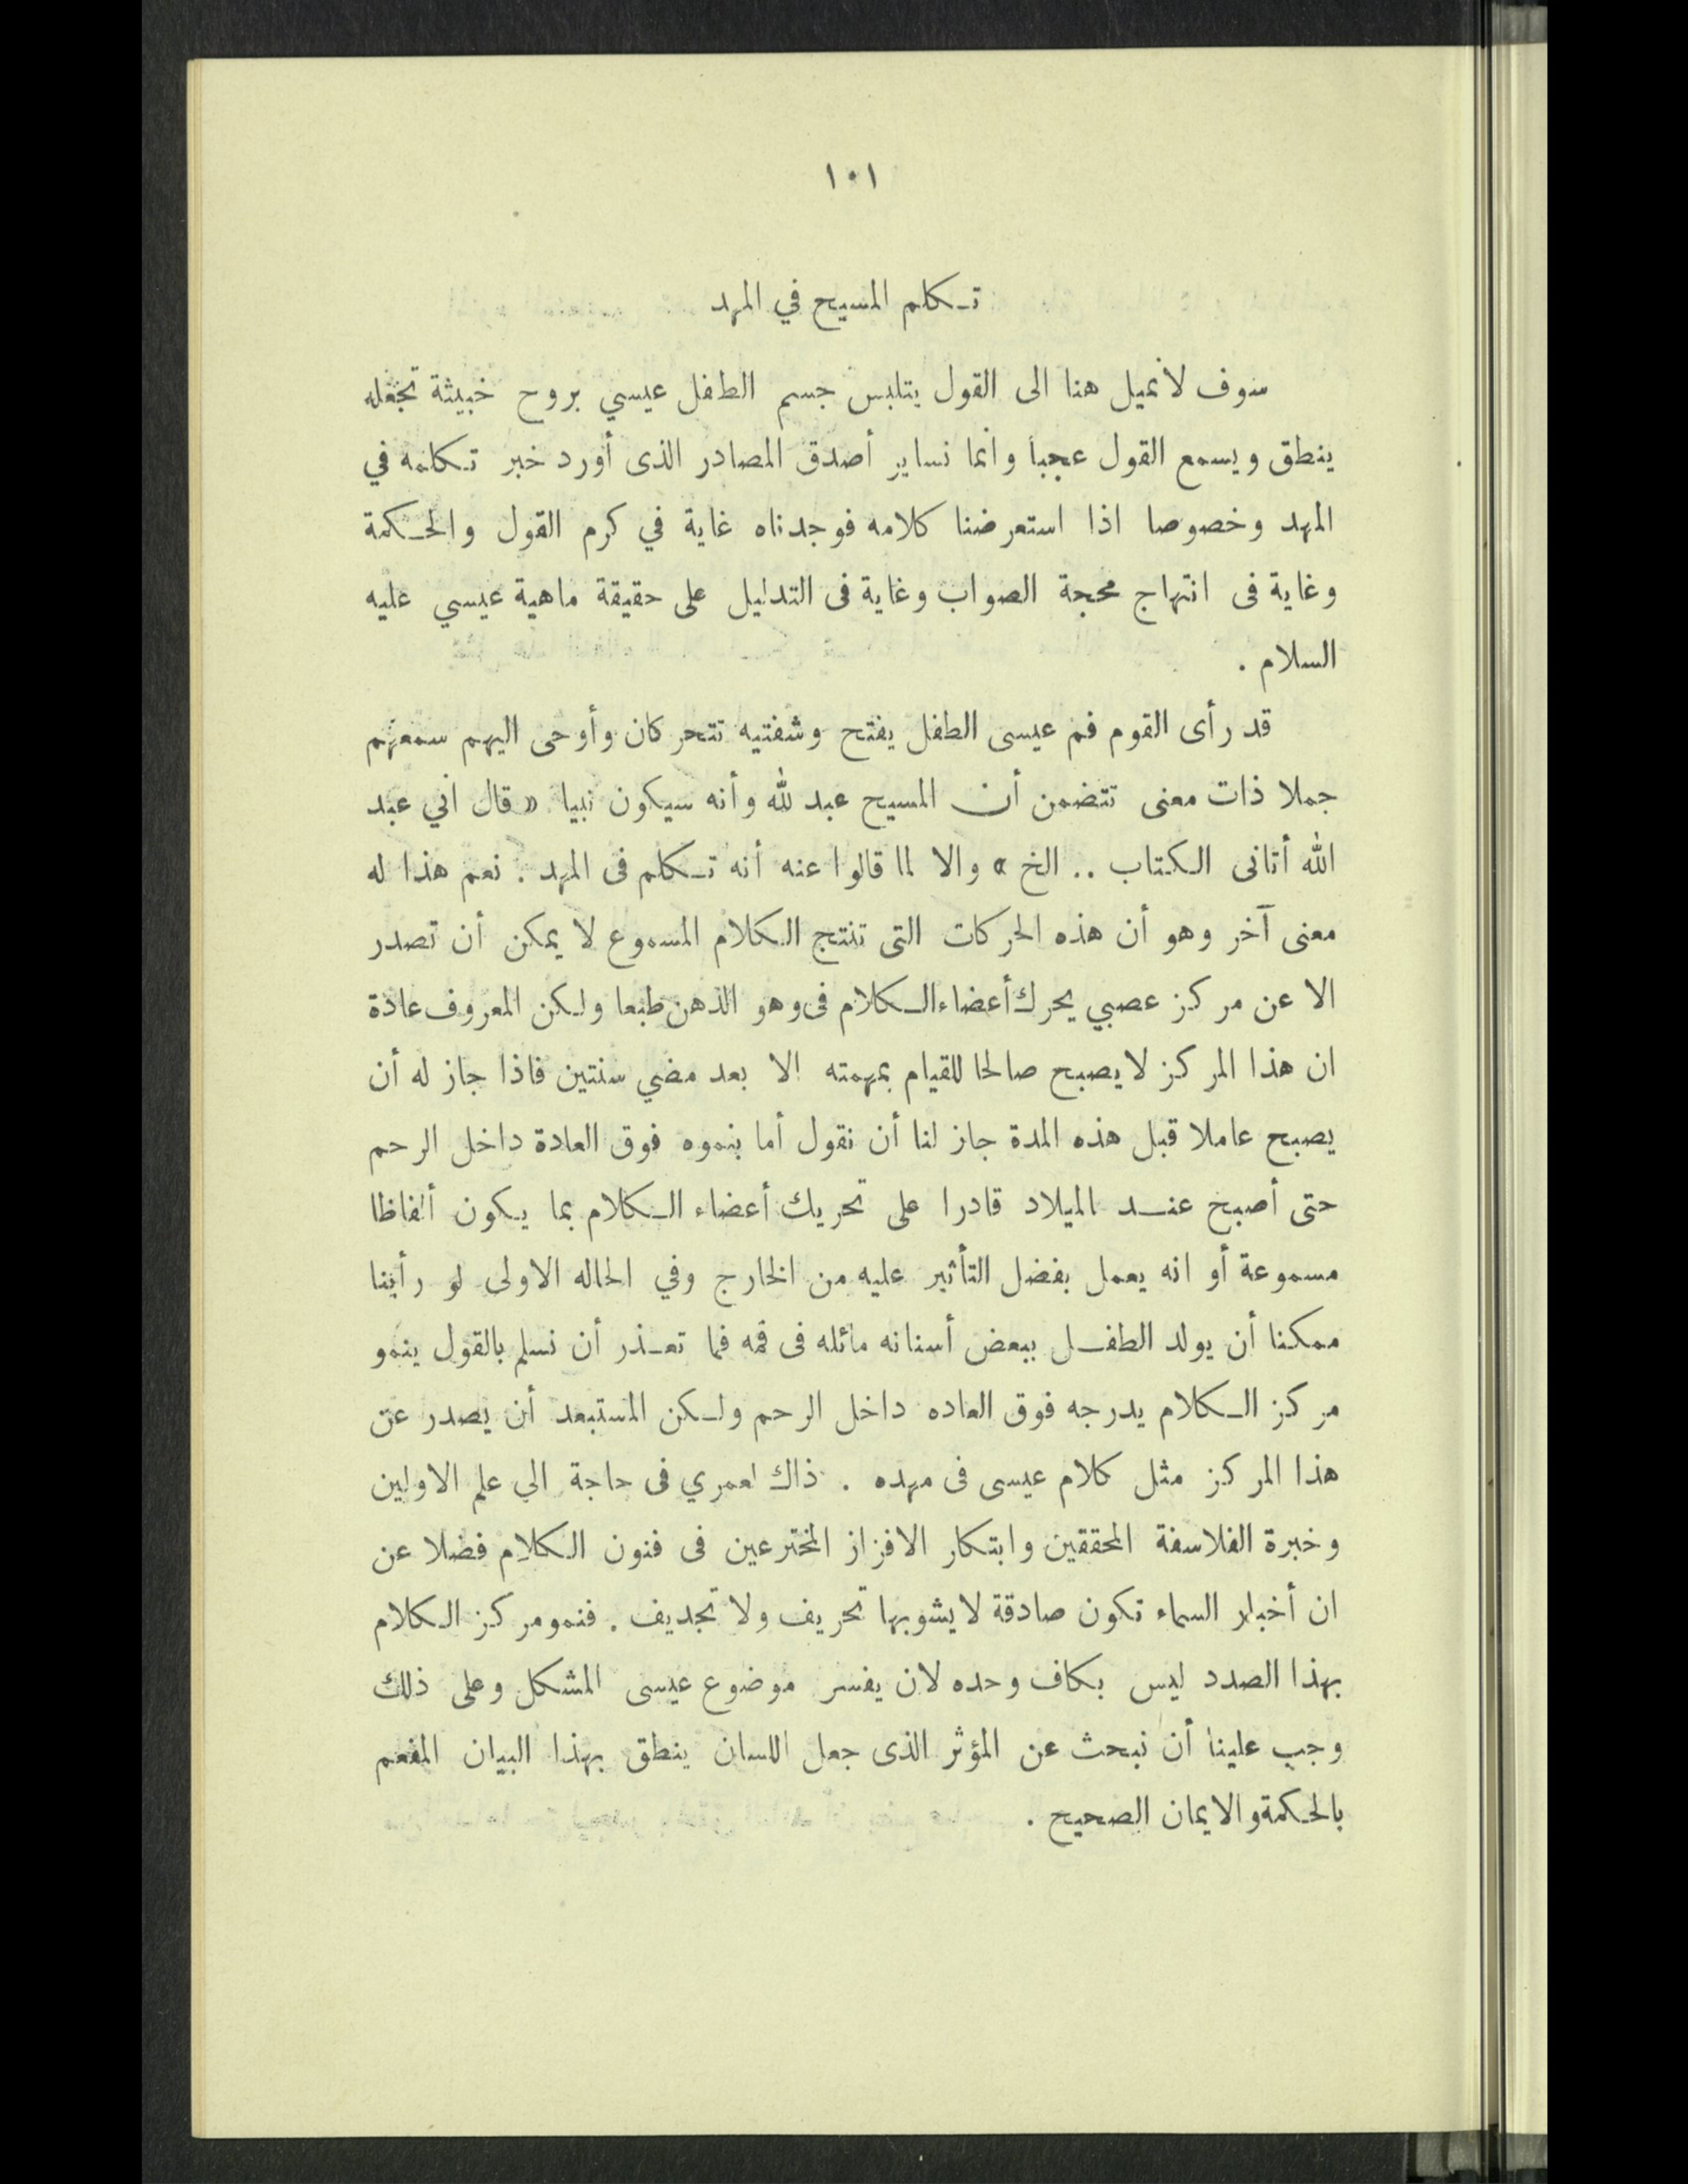 ١٠١
تكلم المسيح في المهد
سوف لانميل هنا الى القول بتلبس جسم الطفل عيسي بروح خبيثة تجعله
ينطق ويسمع القول عجباً وانما نساير أصدق المصادر الذى أورد خبر تكلمه في
المهد وخصوصا اذا استعرضنا كلامه فوجدناه غاية في كرم القول والحكمة
وغاية فى انتهاج محجة الصواب وغاية فى التدليل على حقيقة ماهية عيسي عليه
السلام .
قد رأى القوم فم عيسى الطفل يفتح وشفتيه تتحركان وأوحى اليهم سمعهم
جملا ذات معنى تتضمن أن المسيح عبد لله وأنه سيكون نبيا « قال اني عبد
الله أتانى الكتاب .. الخ » والا لما قالوا عنه أنه تكلم فى المهد . نعم هذا له
معنى آخر وهو أن هذه الحركات التى تنتج الكلام المسموع لا يمكن أن تصدر
الا عن مركز عصبي يحرك أعضاء الكلام فى وهو الذهن طبعا ولكن المعروف عادة
ان هذا المركز لايصبح صالحا للقيام بمهمته الا بعد مضي سنتين فاذا جاز له أن
يصبح عاملا قبل هذه المدة جاز لنا أن نقول أما بنموه فوق العادة داخل الرحم
حتى أصبح عند الميلاد قادرا على تحريك أعضاء الكلام بما يكون ألفاظا
مسموعة أو انه يعمل بفضل التأثير عليه من الخارج وفي الحاله الاولى لو رأينا
ممكنا أن يولد الطفل ببعض أسنانه مائله فى فمه فما تعذر أن نسلم بالقول ينمو
مركز الكلام يدرجه فوق العاده داخل الرحم ولكن المستبعد أن يصدر عن
هذا المركز مثل كلام عيسى فى مهده . ذاك لعمري فى حاجة الي علم الاولين
وخبرة الفلاسفة المحققين وابتكار الافزاز المخترعين فى فنون الكلام فضلا عن
ان أخبار السماء تكون صادقة لايشوبها تحريف ولا تجديف . فنمو مركز الكلام
بهذا الصدد ليس بكاف وحده لان يفسر موضوع عيسى المشكل وعلى ذلك
وجب علينا أن نبحث عن المؤثر الذى جعل اللسان ينطق بهذا البيان المفعم
بالحكمة والايمان الصحيح .